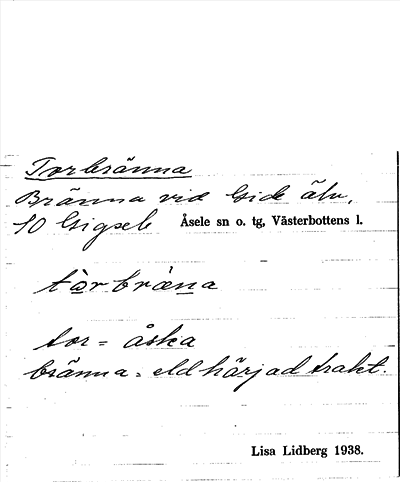 Torbränna
Bränna vid Gide älv,
SO Gigsele Åsele sn o. tg, Västerbottens l.
tòrbræ̀na
tor = åska
bränna = eldhärjad trakt.
Lisa Lidberg 1938.